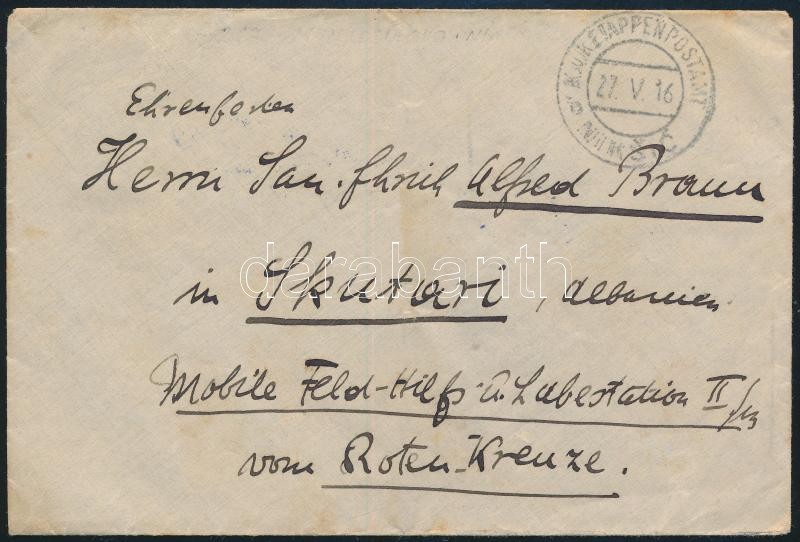 K.u.K. ETAPPENPOSTAMT
27. V. 16
Herrn San. fhrich Alfred Braun
in Skutari, Albanien.
darabanth
Mobile Feld-Hilfs- u. Labestation II/
vom Roten-Kreuze.